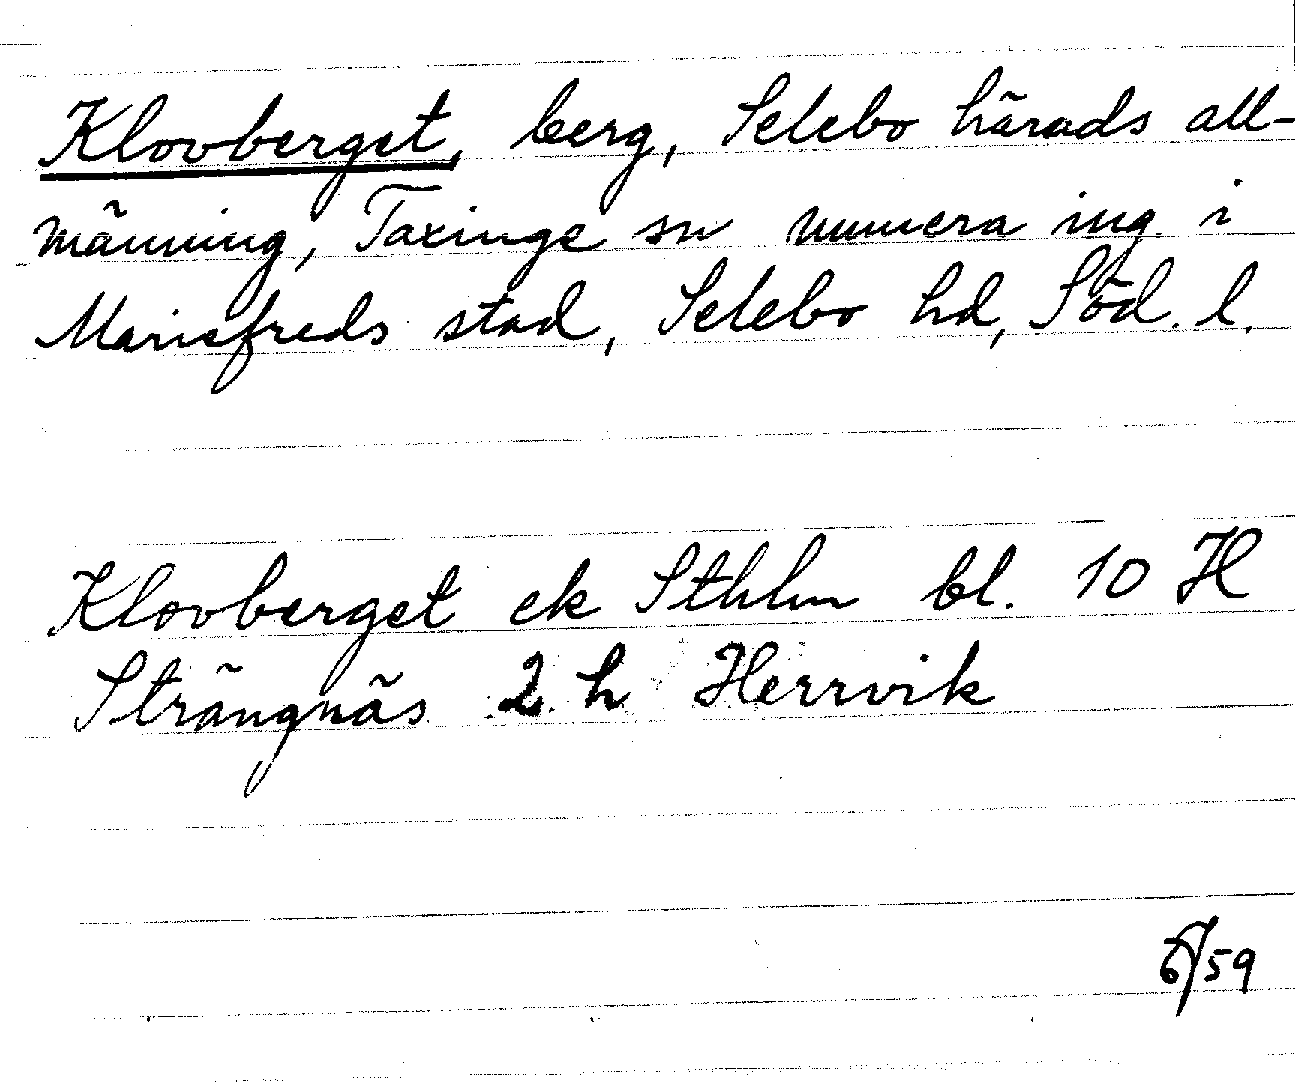 Klovberget, berg, Selebo härads all-
männing, Taxinge sn numera ing. i
Mariefreds stad, Selebo hd, Söd. l.
Klovberget ek Sthlm bl. 10 H
Strängnäs 2 h Herrvik
59